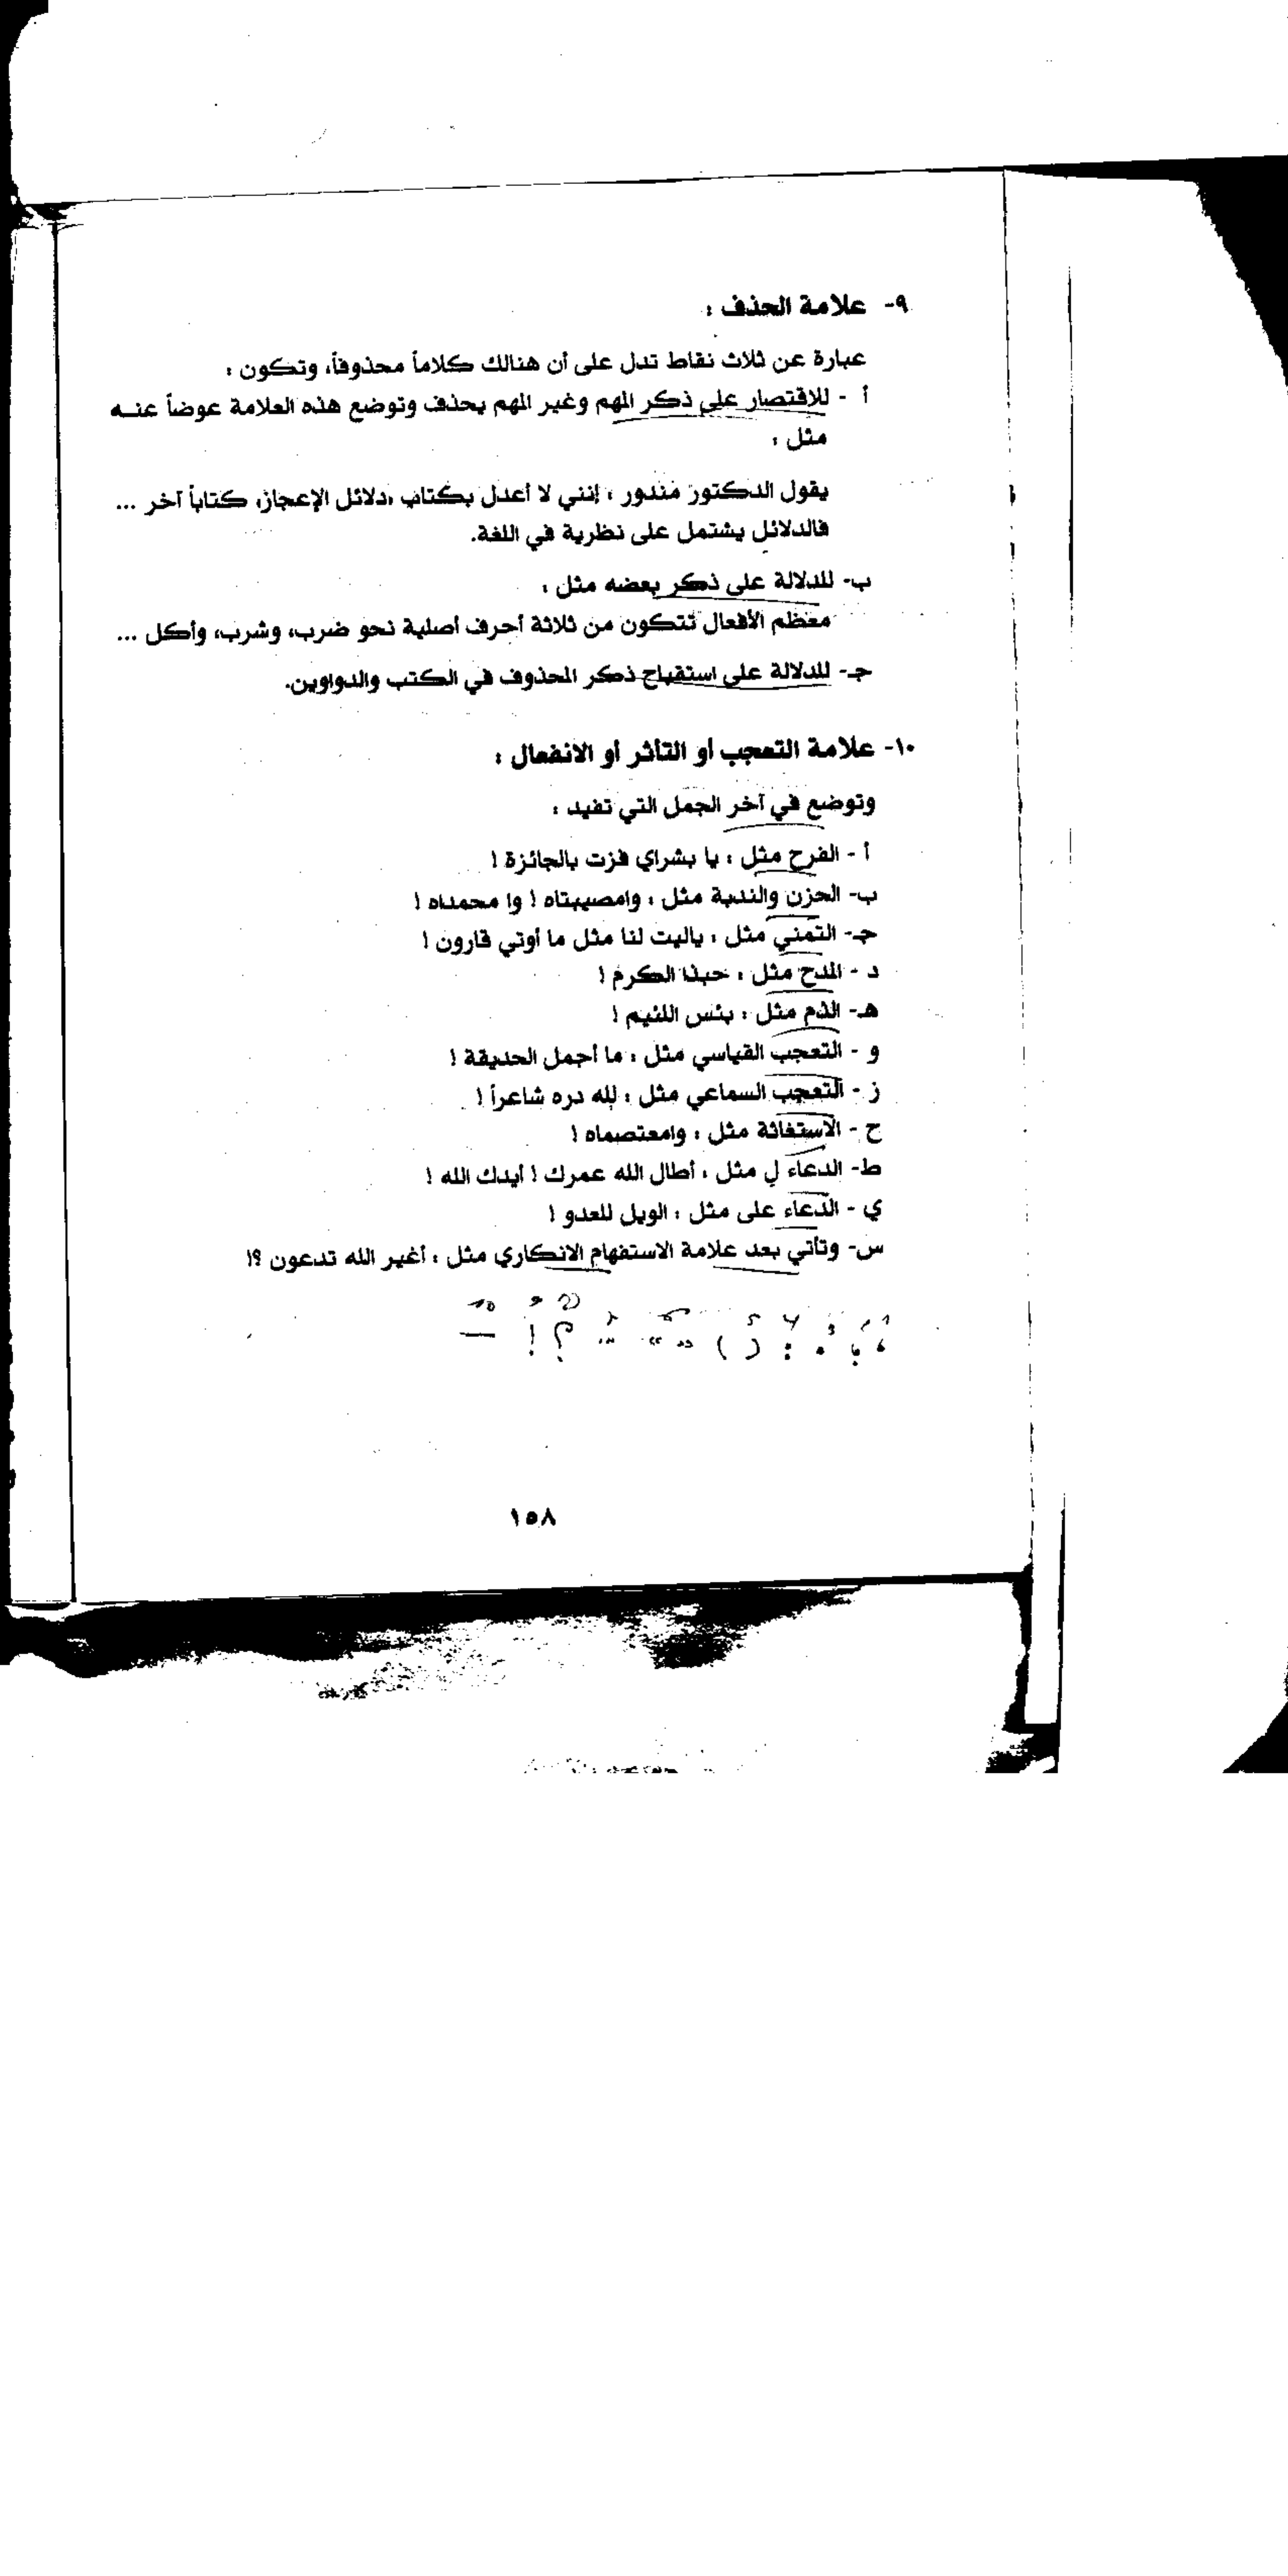 ٩- علامة الحذف :
عبارة عن ثلاث نقاط تدل على أن هنالك كلاماً محذوفاً، وتكون :
أ - للاقتصار على ذكر المهم وغير المهم يحذف وتوضع هذه العلامة عوضاً عنه
مثل :
يقول الدكتور مندور : إنني لا أعدل بكتاب «دلائل الإعجاز» كتاباً آخر ...
فالدلائل يشتمل على نظرية في اللغة.
ب- للدلالة على ذكر بعضه مثل :
معظم الأفعال تتكون من ثلاثة أحرف أصلية نحو ضرب، وشرب، وأكل ...
جـ- للدلالة على استقباح ذكر المحذوف في الكتب والدواوين.
١٠- علامة التعجب أو التأثر أو الانفعال :
وتوضع في آخر الجمل التي تفيد :
أ - الفرح مثل : يا بشراي فزت بالجائزة !
ب- الحزن والندبة مثل : وامصيبتاه ! وا محمداه !
جـ- التمني مثل : ياليت لنا مثل ما أوتي قارون !
د - المدح مثل : حبذا الكرم !
هـ- الذم مثل : بئس اللئيم !
و - التعجب القياسي مثل : ما أجمل الحديقة !
ز - التعجب السماعي مثل : لله دره شاعراً !
ح - الاستغاثة مثل : وامعتصماه !
ط- الدعاء لِ مثل : أطال الله عمرك ! أيدك الله !
ي - الدعاء على مثل : الويل للعدو !
س- وتأتي بعد علامة الاستفهام الانكاري مثل : أغير الله تدعون ؟!
، ؛ . : ( ) « » ... ؟ ! —
١٥٨